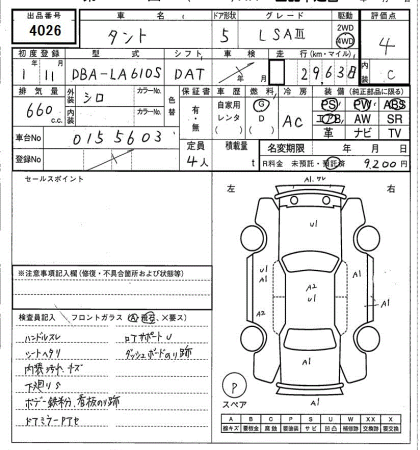 出品番号 車名 ドア形状 グレード 駆動 評価点
4026 タント 5 LSAⅢ 2WD 4WD 4
初度登録 型式 シフト 車検 走行(km・マイル) 内装
1年11月 DBA-LA610S DAT 年 月 29,638 C
排気量 外装 カラーNo. 色替 保証書 車歴 燃料 冷房 装備(純正部品に限る)
660 c.c. シロ 有・無 自家用 G AC PS PW ABS
内装 カラーNo. レンタ D エアB AW SR
( ) ( ) 革 ナビ TV
車台No 0155603 定員 積載量 名変期限 年 月 日
登録No 4人 t R料金 未預託・預託済 9,200円
セールスポイント 左 右
A1.
U1
※注意事項記入欄(修復・不具合箇所および状態等)
U1 A1 A2 U1 A1
A2
検査員記入 フロントガラス ×要ス)
ハンドルスレ ロアサポートU
シートヘタリ ダッシュボードのり跡
内装汚れ、キズ
下廻りS
ボデー鉄粉、看板のり跡
ドアミラーPアセ
A1 A1
P
スペア A1
A B C P S U W X XX
線キズ 要板金 腐蝕 要塗装 サビ 凹凸 補修跡 交換跡 要交換